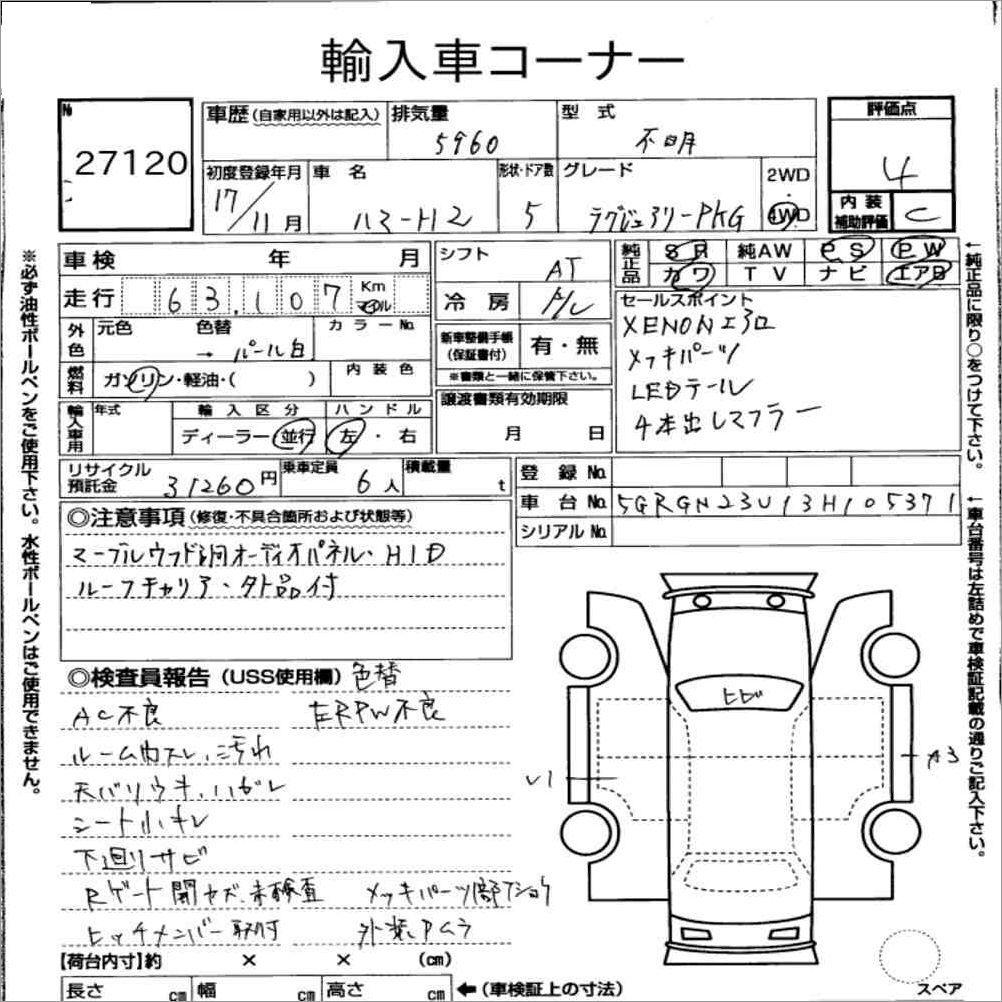 輸入車コーナー
№ 27120
車歴 (自家用以外は記入) 排気量 5960 型式 不明
評価点 4
初度登録年月 17/11月 車名 ハマーH2 形状・ドア数 5 グレード ラグジュアリーPKG 2WD 4WD
内装補助評価 C
車検 年 月
シフト AT
純正品 SR 純AW PS PW
カワ TV ナビ エアB
走行 63,107 Km マイル
冷房 A/C
セールスポイント
XENONエアロ
メッキパーツ
LEDテール
4本出しマフラー
外色 元色 色替 → パール白 カラーNo.
新車整備手帳(保証書付) 有・無
※書類と一緒に保管下さい。
燃料 ガソリン・軽油・( ) 内装色
譲渡書類有効期限 月 日
輸入車用 年式 輸入区分 ディーラー 並行 ハンドル 左・右
リサイクル預託金 31260円 乗車定員 6人 積載量 t
登録No.
車台No. 5GRGN23U13H105371
シリアルNo.
◎注意事項 (修復・不具合箇所および状態等)
マーブルウッド調オーディオパネル・HID
ルーフキャリア・外品付
◎検査員報告 (USS使用欄) 色替
AC不良
ルーム内スレ、汚れ
天バリウキ、ハガレ
シート小キレ
下廻りサビ
メッキパーツ部フショク
ヒッチメンバー取付 外装Pムラ
ヒビ
A3
【荷台内寸】約 × × (cm)
長さ cm 幅 cm 高さ cm ←(車検証上の寸法)
スペア
※必ず油性ボールペンをご使用下さい。水性ボールペンはご使用できません。
←純正品に限り○をつけて下さい。
←車台番号は左詰めで車検証記載の通りご記入下さい。